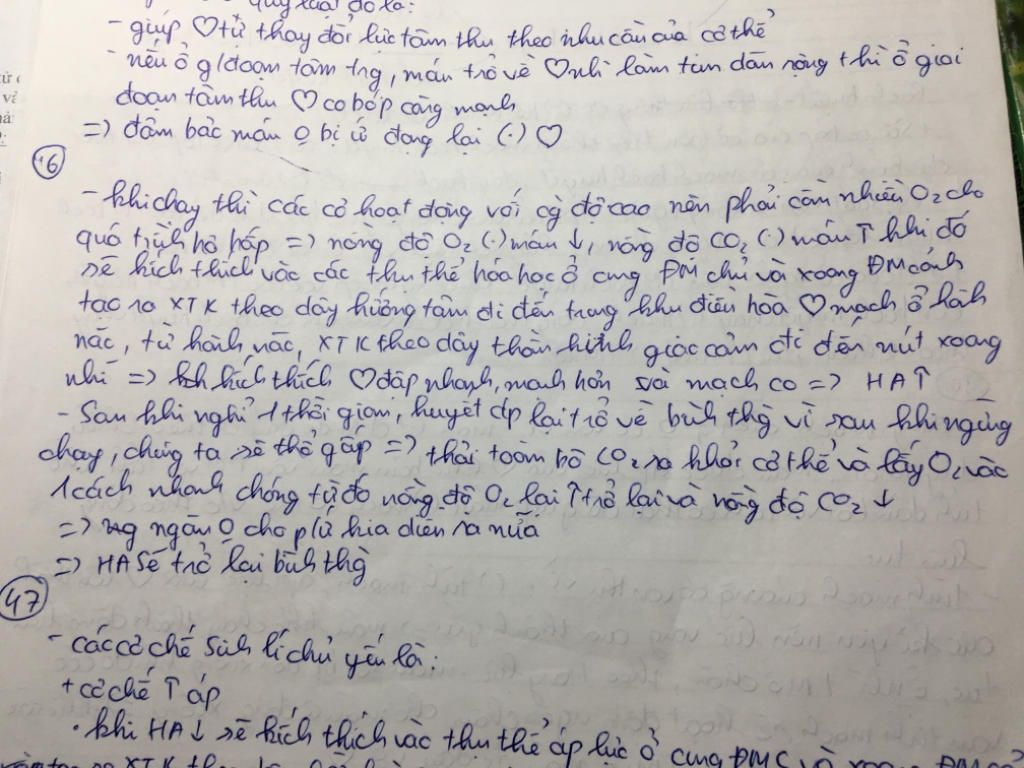 quy luật đó là:
- giúp ♡ tự thay đổi lực tâm thu theo nhu cầu của cơ thể
- nếu ở g/đoạn tâm trg, máu trở về ♡ nhì làm tim dãn rộng thì ở giai
đoạn tâm thu ♡ co bóp càng mạnh
=> đảm bảo máu O bị ứ đọng lại (.) ♡
46
- khi chạy thì các cơ hoạt động với cg độ cao nên phải cần nhiều O2 cho
quá trình hô hấp => nồng độ O2 (.) máu ↓, nồng độ CO2 (.) máu ↑ khi đó
sẽ kích thích vào các thụ thể hóa học ở cung ĐM chủ và xoang ĐM cảnh
tạo ra XTK theo dây hướng tâm đi đến trung khu điều hòa ♡ mạch ở hành
não, từ hành não, XTK theo dây thần kinh giao cảm đi đến nút xoang
nhĩ => kích thích ♡ đập nhanh, mạnh hơn và mạch co => HA↑
- Sau khi nghỉ 1 thời gian, huyết áp lại trở về bình thg vì sau khi ngừng
chạy, chúng ta sẽ thở gấp => thải toàn bộ CO2 ra khỏi cơ thể và lấy O2 vào
1 cách nhanh chóng từ đó nồng độ O2 lại ↑ trở lại và nồng độ CO2 ↓
=> ngăn O cho p/ứ kia diễn ra nữa
=> HA sẽ trở lại bình thg
47
- các cơ chế sinh lí chủ yếu là:
+ cơ chế ↑ áp
. khi HA↓ sẽ kích thích vào thụ thể áp lực ở cung ĐMC và xoang ĐM cổ